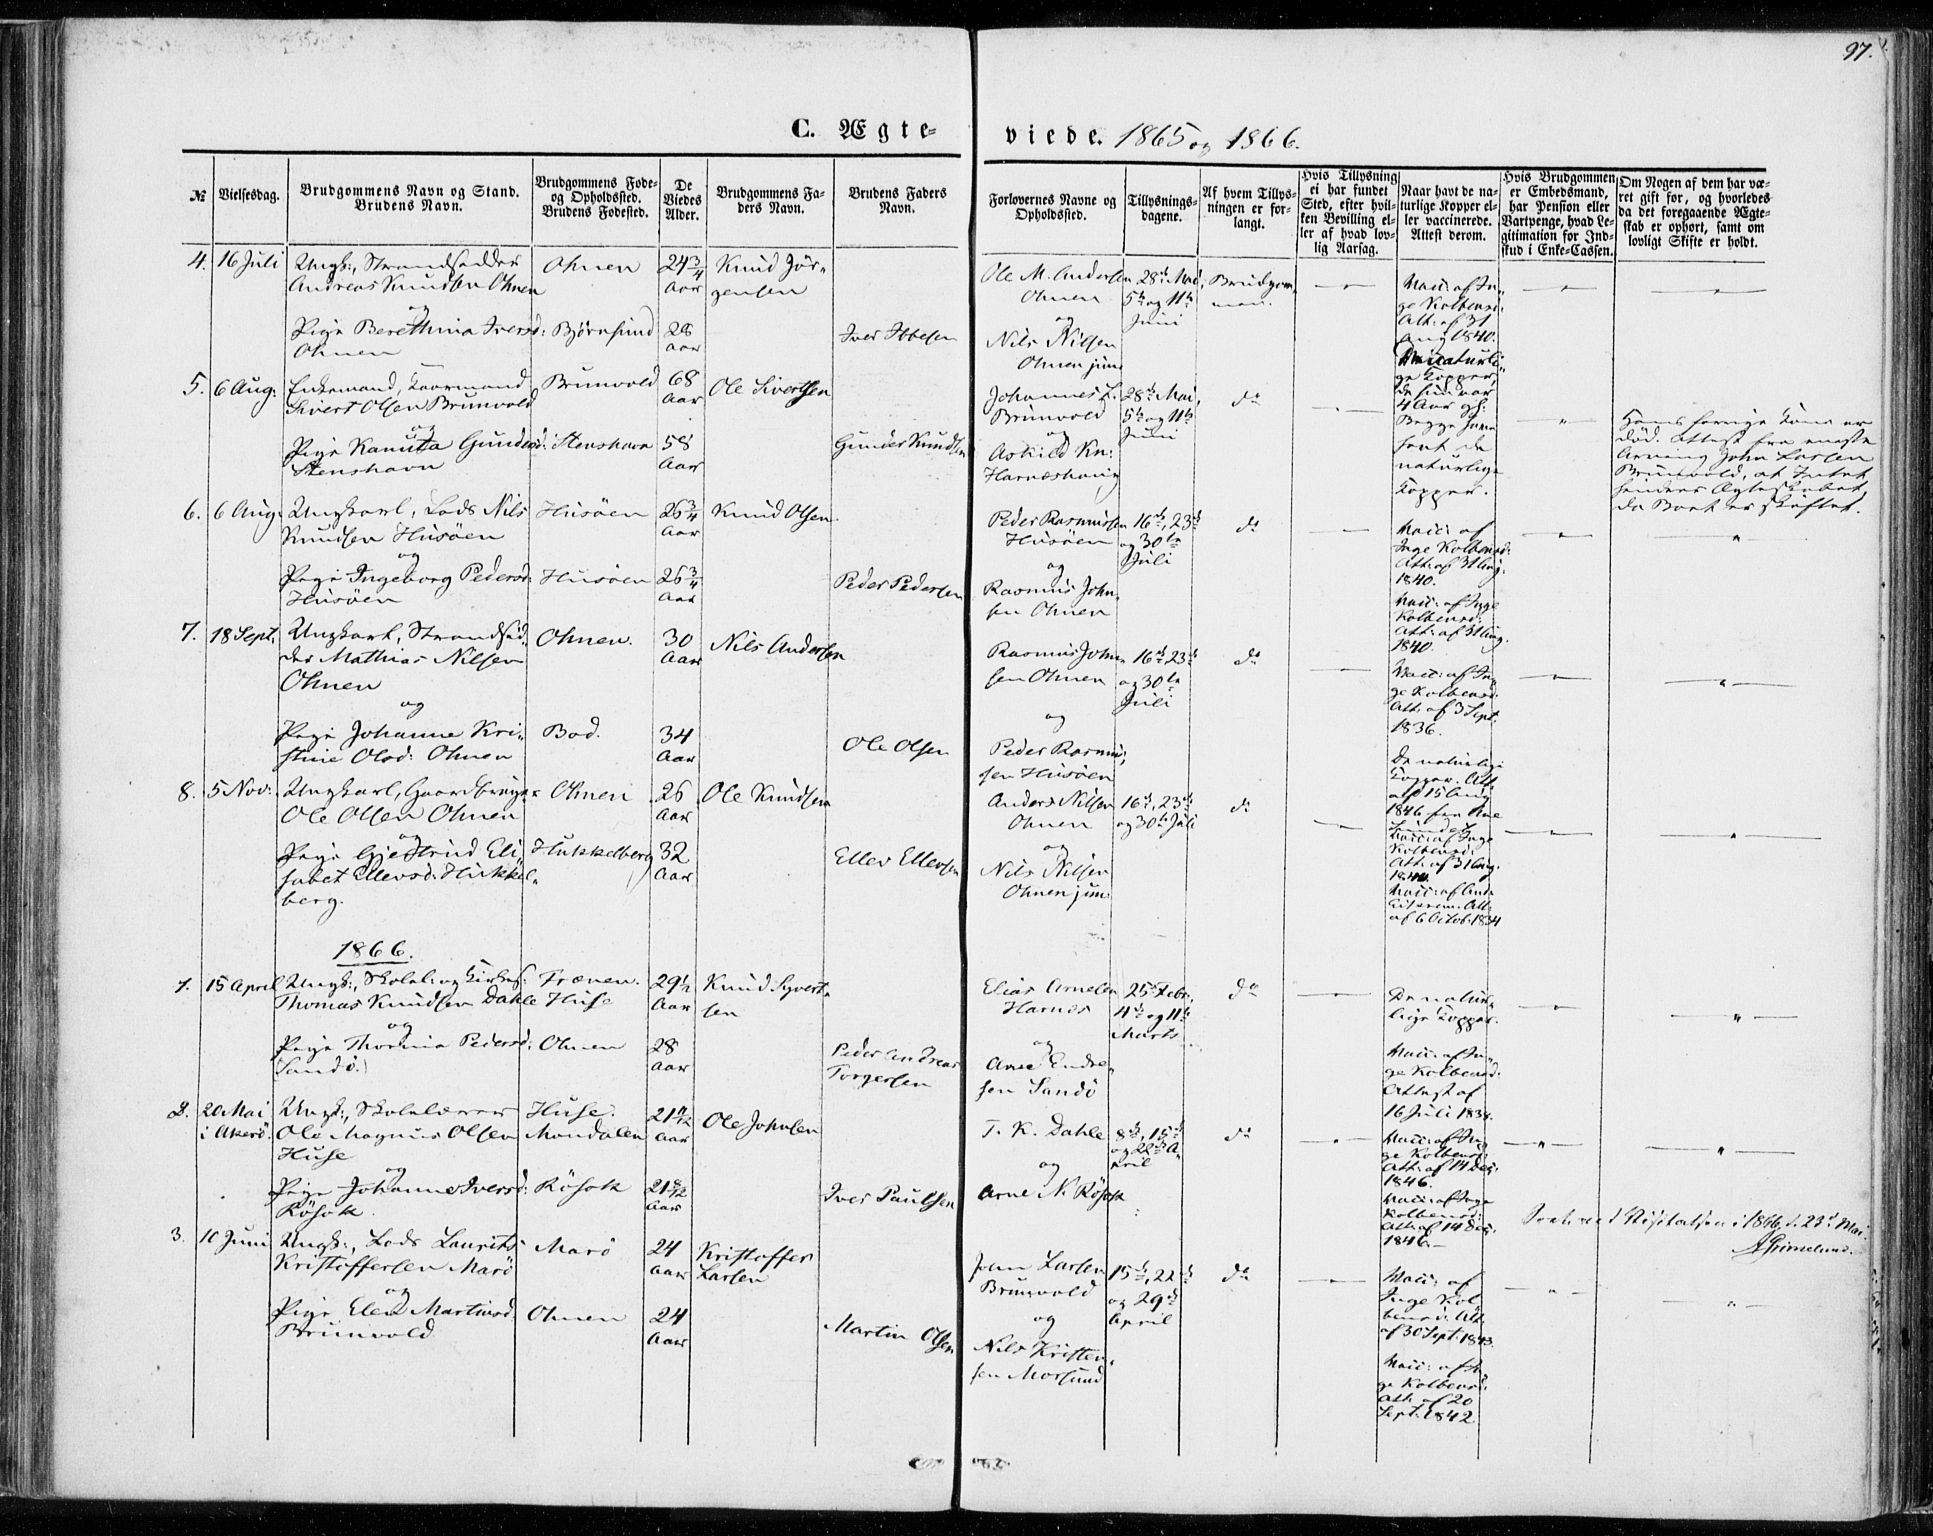 97.
C. Ægte-
viede. 1865 og 1866.
№
Vielsesdag.
Brudgommens Navn og Stand.
Brudens Navn.
Brudgommens Føde-
og Opholdssted.
Brudens Fødested.
De
Viedes
Alder.
Brudgommens Fa-
ders Navn.
Brudens Faders
Navn.
Forlovernes Navne og
Opholdssted.
Tillysnings-
dagene.
Af hvem Tillys-
ningen er for-
langt.
Hvis Tillysning
ei har fundet
Sted, efter hvil-
ken Bevilling el-
ler af hvad lov-
lig Aarsag.
Naar havt de na-
turlige Kopper el-
ler vaccinerede.
Attest derom.
Hvis Brudgommen
er Embedsmand,
har Pension eller
Vartpenge, hvad Le-
gitimation for Ind-
skud i Enke-Cassen.
Om Nogen af dem har væ-
ret gift før, og hvorledes
da det foregaaende Ægte-
skab er ophørt, samt om
lovligt Skifte er holdt.
4. 16 Juli
Ungk:, Strandsidder
Andreas Knudsen Ohnen
og
Pige Berethina Iversd:
Ohnen
Ohnen
Bjørnsund
24 3/4
Aar
28
Aar
Knud Jör-
gensen
Iver Ibbesen
Ole M. Andersen
Ohnen
og
Nils Nilsen
Ohnen jun:
28de Mai,
5te og 11te
Juni
Brudgom-
men.
Vacc: af In-
ge Kolbensd:
Att: af 31
Aug 1840.
De naturli-
ge Kopper,
da hun var
4 Aar gl:
5. 6 Aug:
Enkemand, Kaarmand
Sivert Olsen Brunvold
og
Pige Kanutta Gundersd:
Stenshavn
Brunvold
Stenshavn
68
Aar
58
Aar
Ole Sivertsen
Gunder Knudsen
Johannes L.
Brunvold
og
Askild Kn:
Harnæshaug
28de Mai,
5te og 11te
Juni
do
Begge have
havt de
naturlige
Kopper.
Hans forrige Kone er
død. Attest fra eneste
Arving John Larsen
Brunvold, at Intet
hindrer Ægteskabet,
da Boet er skiftet.
6. 6 Aug:
Ungkarl, Lods Nils
Knudsen Husöen
og
Pige Ingeborg Pedersd:
Husöen
Husöen
Husöen
26 3/4
Aar
26 3/4
Aar
Knud Olsen
Peder Pedersen
Peder Rasmussen
Husöen
og
Rasmus John-
sen Ohnen
16de, 23de
og 30te
Juli
do
Vacc: af
Inge Kolbensd:
Att: af 31 Aug:
1840.
Vacc: af Inge
Kolbensd:
Att: af 31 Aug.
1840.
7. 18 Sept.
Ungkarl, Strandsid-
der Mathias Nilsen
Ohnen
og
Pige Johanne Kri-
stine Olsd: Ohnen
Ohnen.
Bod.
30
Aar
34
Aar
Nils Andersen
Ole Olsen
Rasmus John-
sen Ohnen
og
Peder Rasmus-
sen Husöen
16de, 23de
og 30te
Juli
do
Vacc: af In-
ge Kolbensd:
Att: af 3 Sept.
1836.
De naturlige
Kopper. Att.
af 15 Aug
1846 fra
8. 5 Nov:
Ungkarl, Gaardbruger
Ole Olsen Ohnen
og
Pige Gjertrud Eli-
sabet Ellevsd: Hukkel-
berg.
Ohnen
Hukkelberg
26
Aar
32
Aar
Ole Knudsen
Ellev Ellevsen
Anders Nilsen
Ohnen
og
Nils Nilsen
Ohnen jun:
16de, 23de
og 30te Juli
do
Vacc: af Inge
Kolbensd:
Att: af 31 Aug.
1840.
Vacc: af
Att:
af 6 Octob: 1834
1866.
1. 15 April
Ungk:, Skolel: og Kirkes:
Thomas Knudsen Dahle
og
Pige Thorina Pedersd:
Sandö.
Frænen.
Huse
Ohnen
29 1/2
Aar
28
Aar
Knud Syvert-
sen
Peder Andreas
Torgersen
Elias Arnesen
Harnæs
og
Arne Endre-
sen Sandö
25 Febr.,
4de og 11te
Marts
do
De natur-
lige Kopper.
Vacc: af In-
ge Kolbensd:
Attest af
16 Juli 1838.
2. 20 Mai
i Akerö.
Ungk:, Skolelærer
Ole Magnus Olsen
Huse
og
Pige Johanne Iversd:
Rösok.
Huse.
Mondalen
Rösok
21
Aar
21
Aar
Ole Johnsen
Iver Paulsen
T. K. Dahle
og
Arne N. Rösok
8de, 15de
og 22de A-
pril
do
Vacc: af In-
ge Kolbensd:
Att: af 14 Dec:
1846.
Vacc: af Inge
Kolbensd:
Att: af 14 Dec:
1846.
Visitatsen i 1866 d. 23de Mai.
AGrimelund.
3. 10 Juni
Ungk:, Lods Laurits
Kristoffersen Marö
og
Pige Elen Martinsd
Brunvold
Marö
Ohnen
24
Aar
24
Aar
Kristoffer
Larsen
Martin Olsen
John Larsen
Brunvold
og
Nils Kristen-
sen Morsund
15de, 22de
og 29de
April
do
Vacc: af
Inge Kol-
bensd: Att.
af 30 Sept: 1843.
Vacc: af In-
ge Kolbensd:
Att. af 20
Sept: 1842.